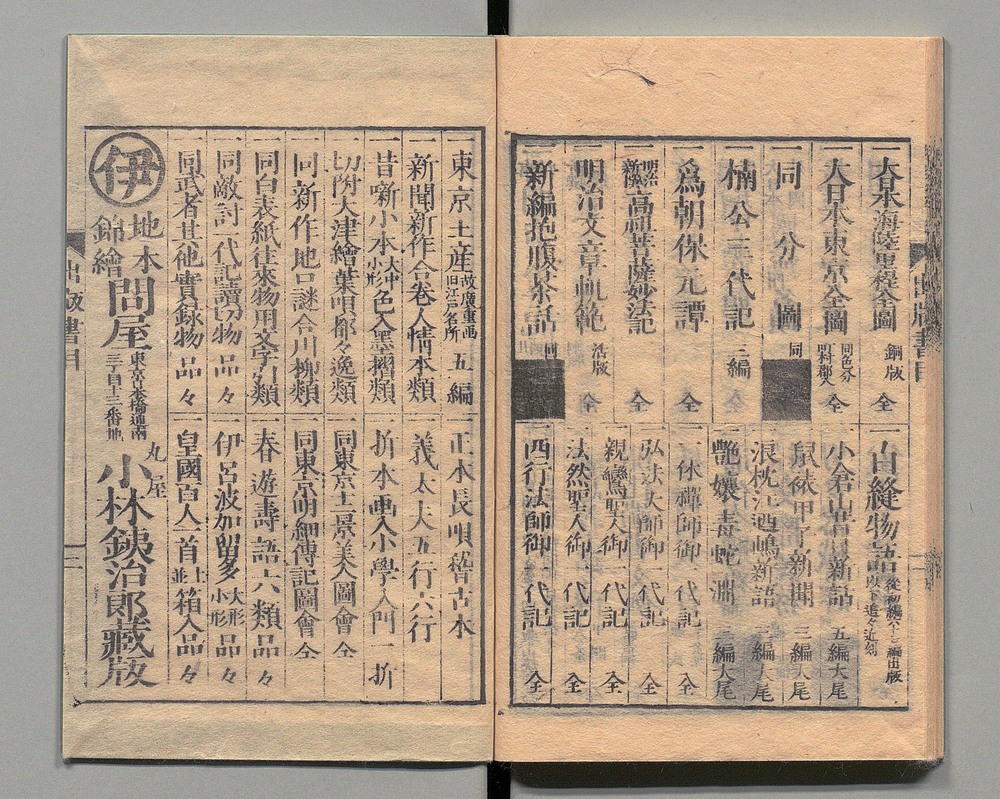 一大日本海陸里程全圖 銅版 全
一大日本東京全圖 同色分 町村郡入 全
一同 分 圖 同
一楠公三代記 三編
一爲朝保元譚 全
一高祖菩薩妙法記 全
一明治文章軌範 活版 全
一新編抱腹茶話 同
一白縫物語 從初編六十三編出版 以下追々近刻
一小倉山青樹新話 五編大尾
一鼠祢甲子新聞 三編大尾
一浪枕江の嶋新語 三編大尾
一艶嬢毒蛇淵 三編大尾
一一休禪師御一代記 全
一弘法大師御一代記 全
一親鸞聖人御一代記 全
一法然聖人御一代記 全
一西行法師御一代記 全
出版書目
一東京土産 故廣重画 旧江戸名所 五編
一新聞新作合巻人情本類
一昔噺小本 大中小形 色入墨摺類
一切附大津繪葉唄都々逸類
一同新作地口謎合川柳類
一同白表紙往來物用文字引類
一同敵討一代記讀切物 品々
一同武者其他實録物 品々
一正本長唄稽古本
一義太夫五行六行
一折本画入小學入門 一折
一同東京十二景美人圖會 全
一同東京明細傳記圖會 全
一春遊壽語六類品々
一伊呂波加留多 大形 小形 品々
一皇國百人一首 並上 箱入品々
伊
地本
錦繪
問屋
東京京橋通南
三丁目十三番地
丸屋
小林鉄治郎藏版
出版書目
二